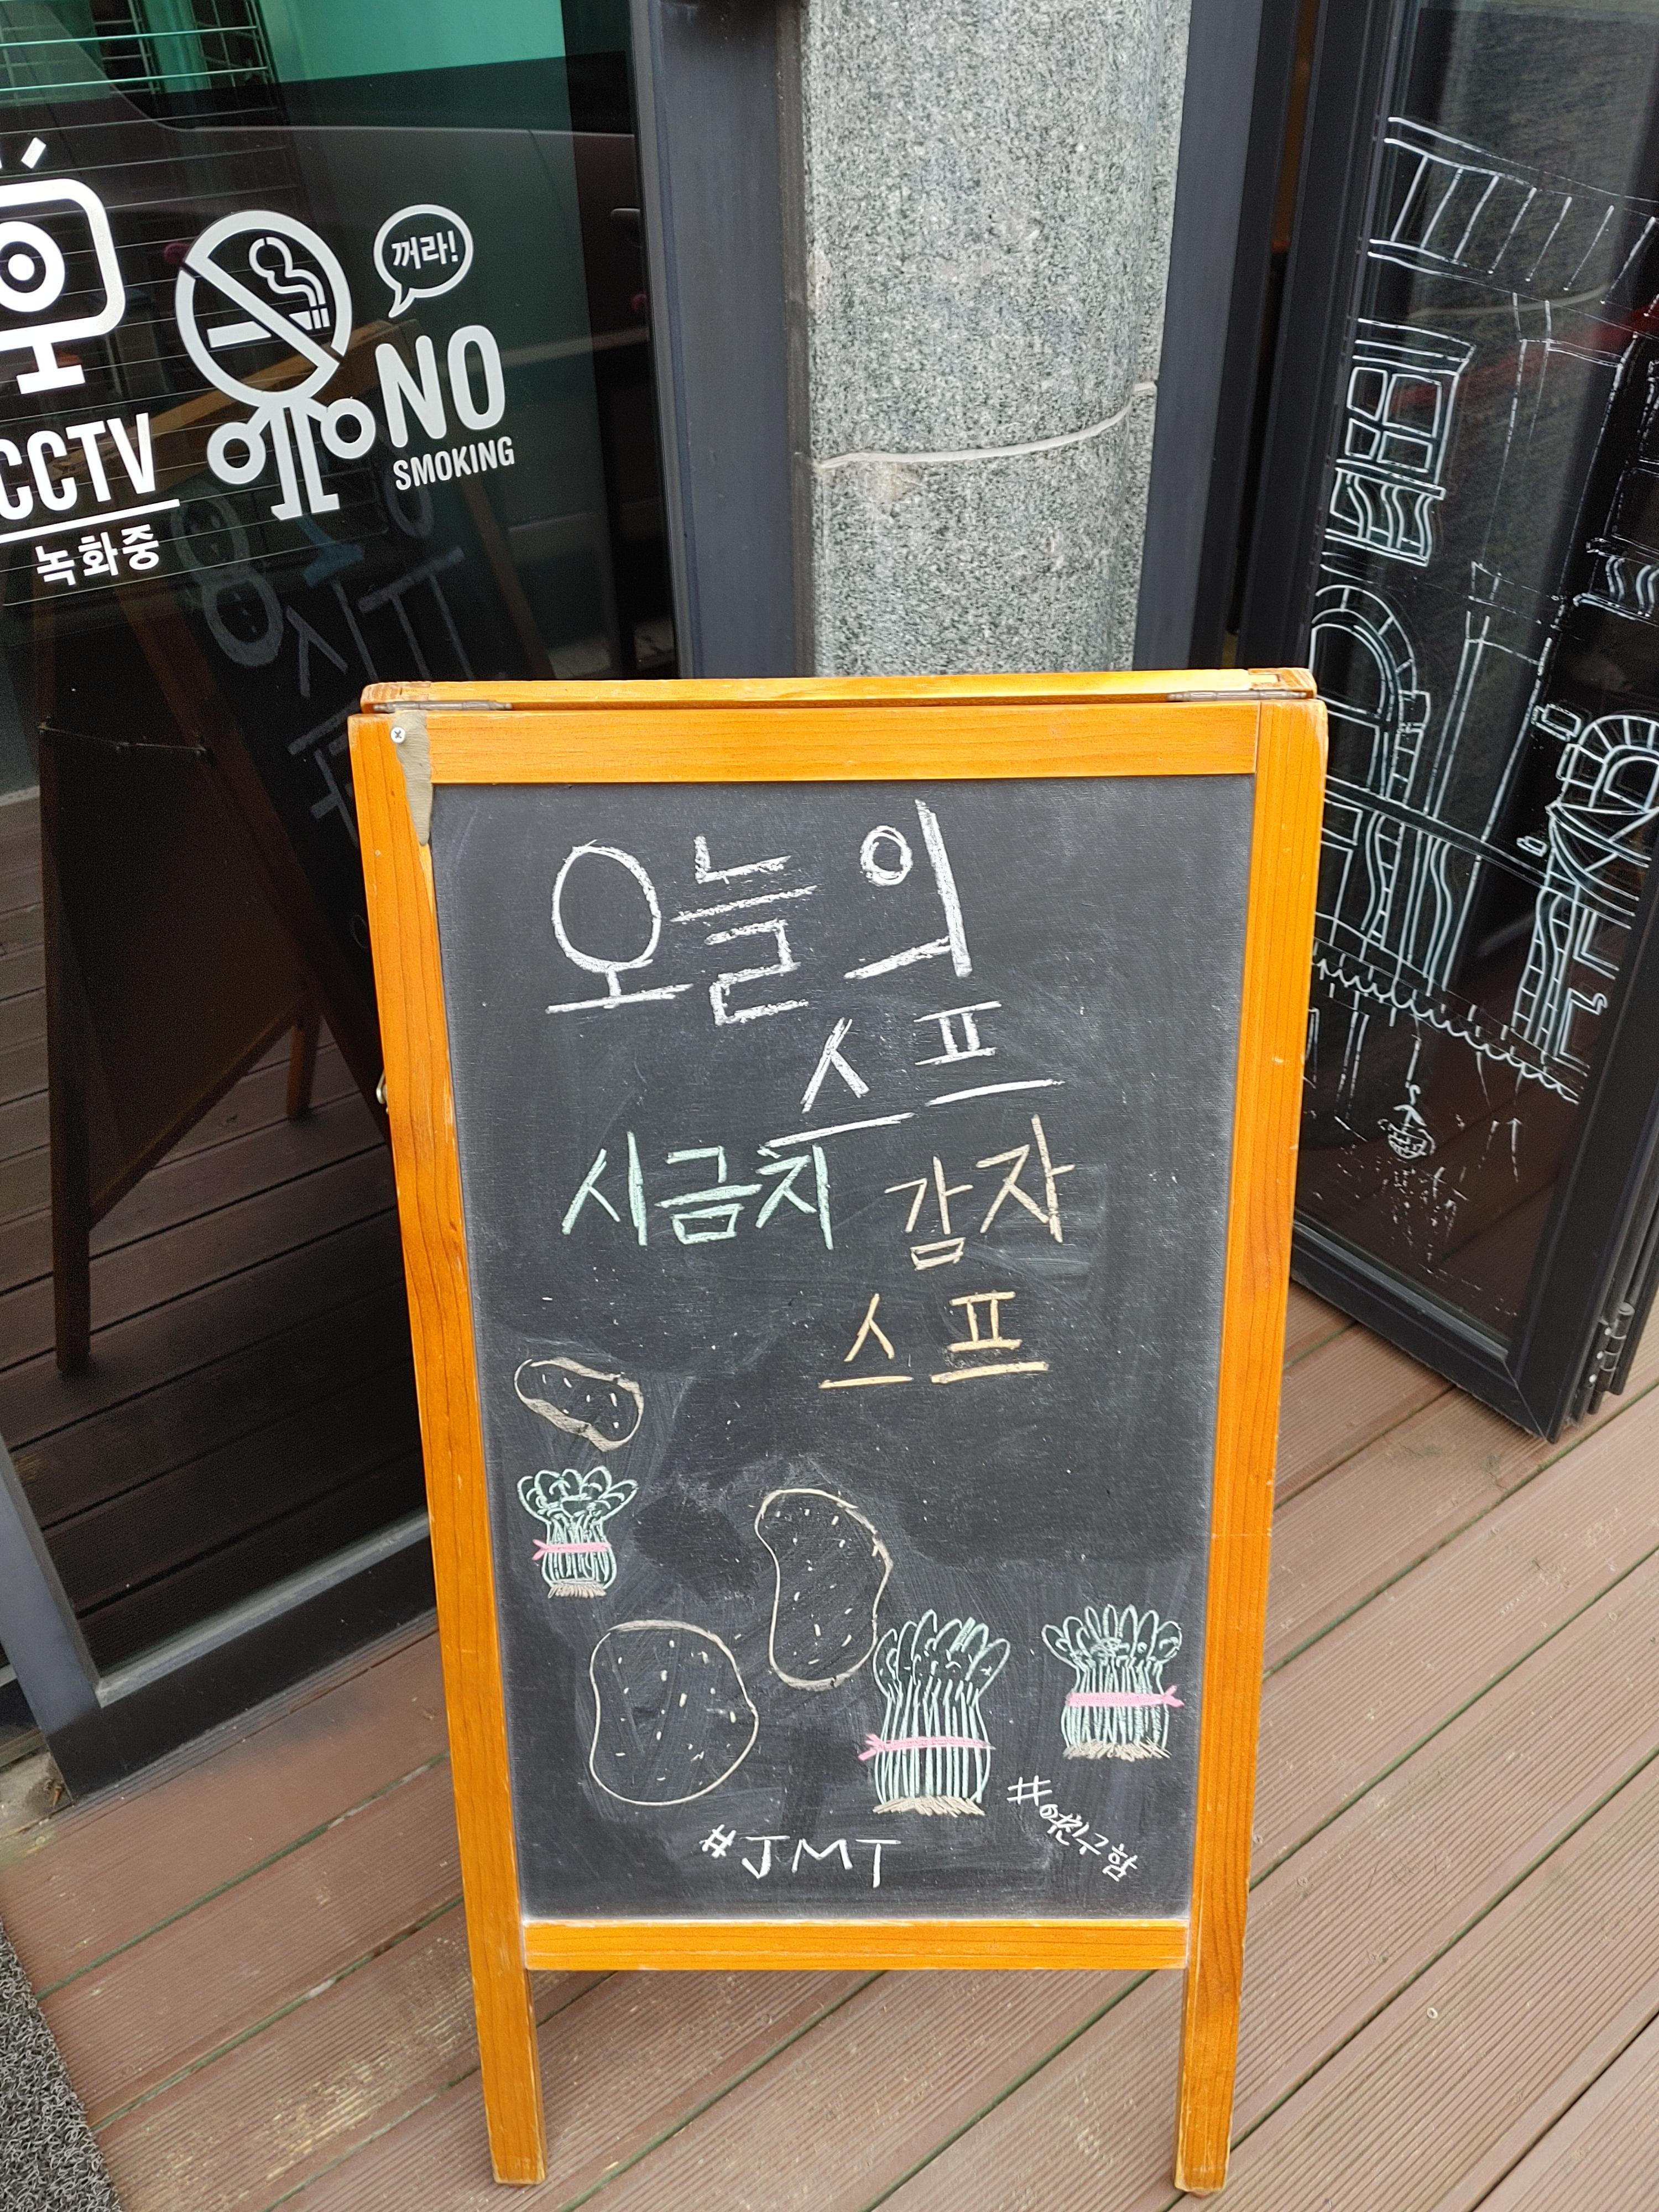 꺼라!
NO
SMOKING
CCTV
녹화중
오늘의
스프
시금치 감자
스프
#JMT
#여친구함